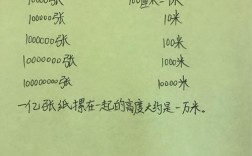 10000张 100厘米=1米
100000张 10米
1000000张 100米
10000000张 1000米
100000000张 10000米
一亿张纸摞在一起的高度大约是一万米。